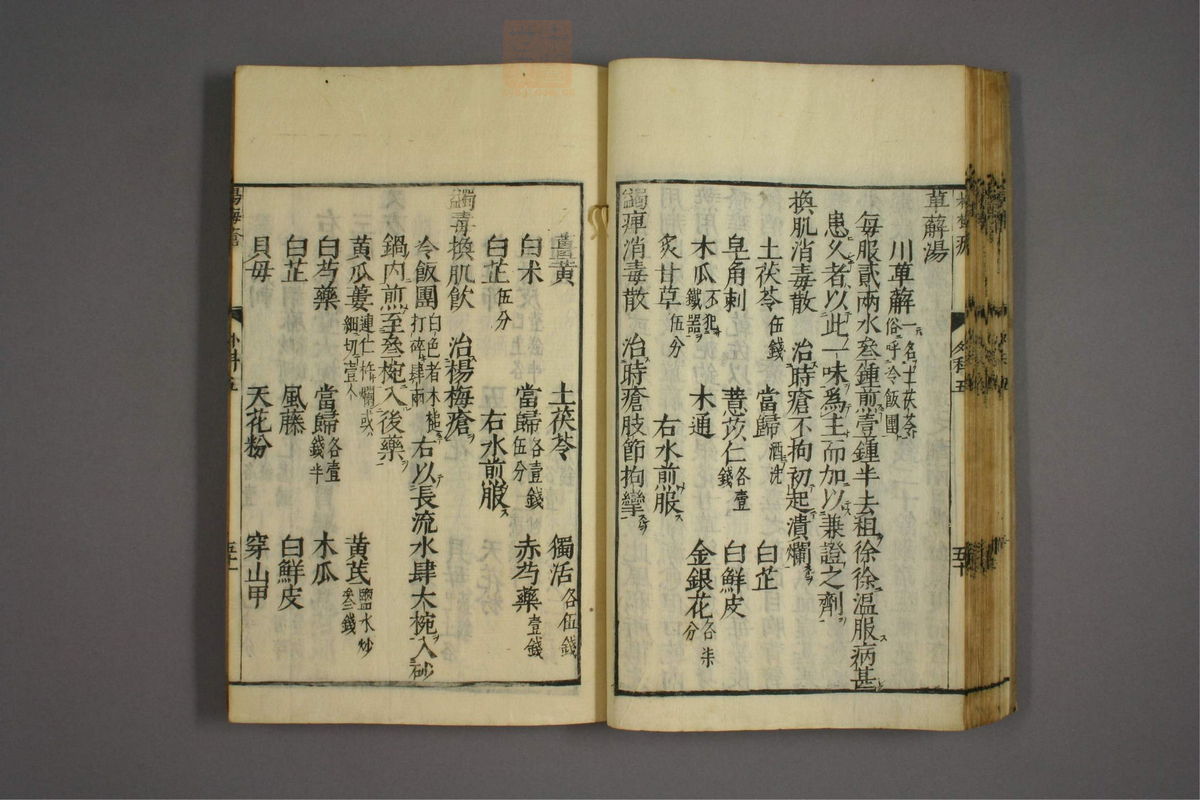 萆薢湯
川萆薢一名土茯苓俗呼冷飯團
每服貳兩水叄鍾煎壹鍾半去柤徐徐溫服病甚
患久者以此一味爲主而加以兼證之劑
換肌消毒散　治時瘡不拘初起潰爛
土茯苓伍錢　當歸酒洗　白芷
皂角刺　薏苡仁各壹錢　白鮮皮
木瓜不犯鐵器　木通　金銀花各柒分
炙甘草伍分　右水煎服
蠲痺消毒散　治時瘡肢節拘攣
外科五
五十
薑黃　土茯苓　獨活各伍錢
白朮　當歸各壹錢伍分　赤芍藥壹錢
白芷伍分　右水煎服
蠲毒換肌飲　治楊梅瘡
冷飯團白色者木槌打碎肆兩　右以長流水肆大椀入砂
鍋內煎至叄椀入後藥
黃瓜蔞連仁杵爛或細切壹个　黃芪鹽水炒叄錢
白芍藥　當歸各壹錢半　木瓜
白芷　風藤　白鮮皮
貝母　天花粉　穿山甲
楊梅瘡
外科五